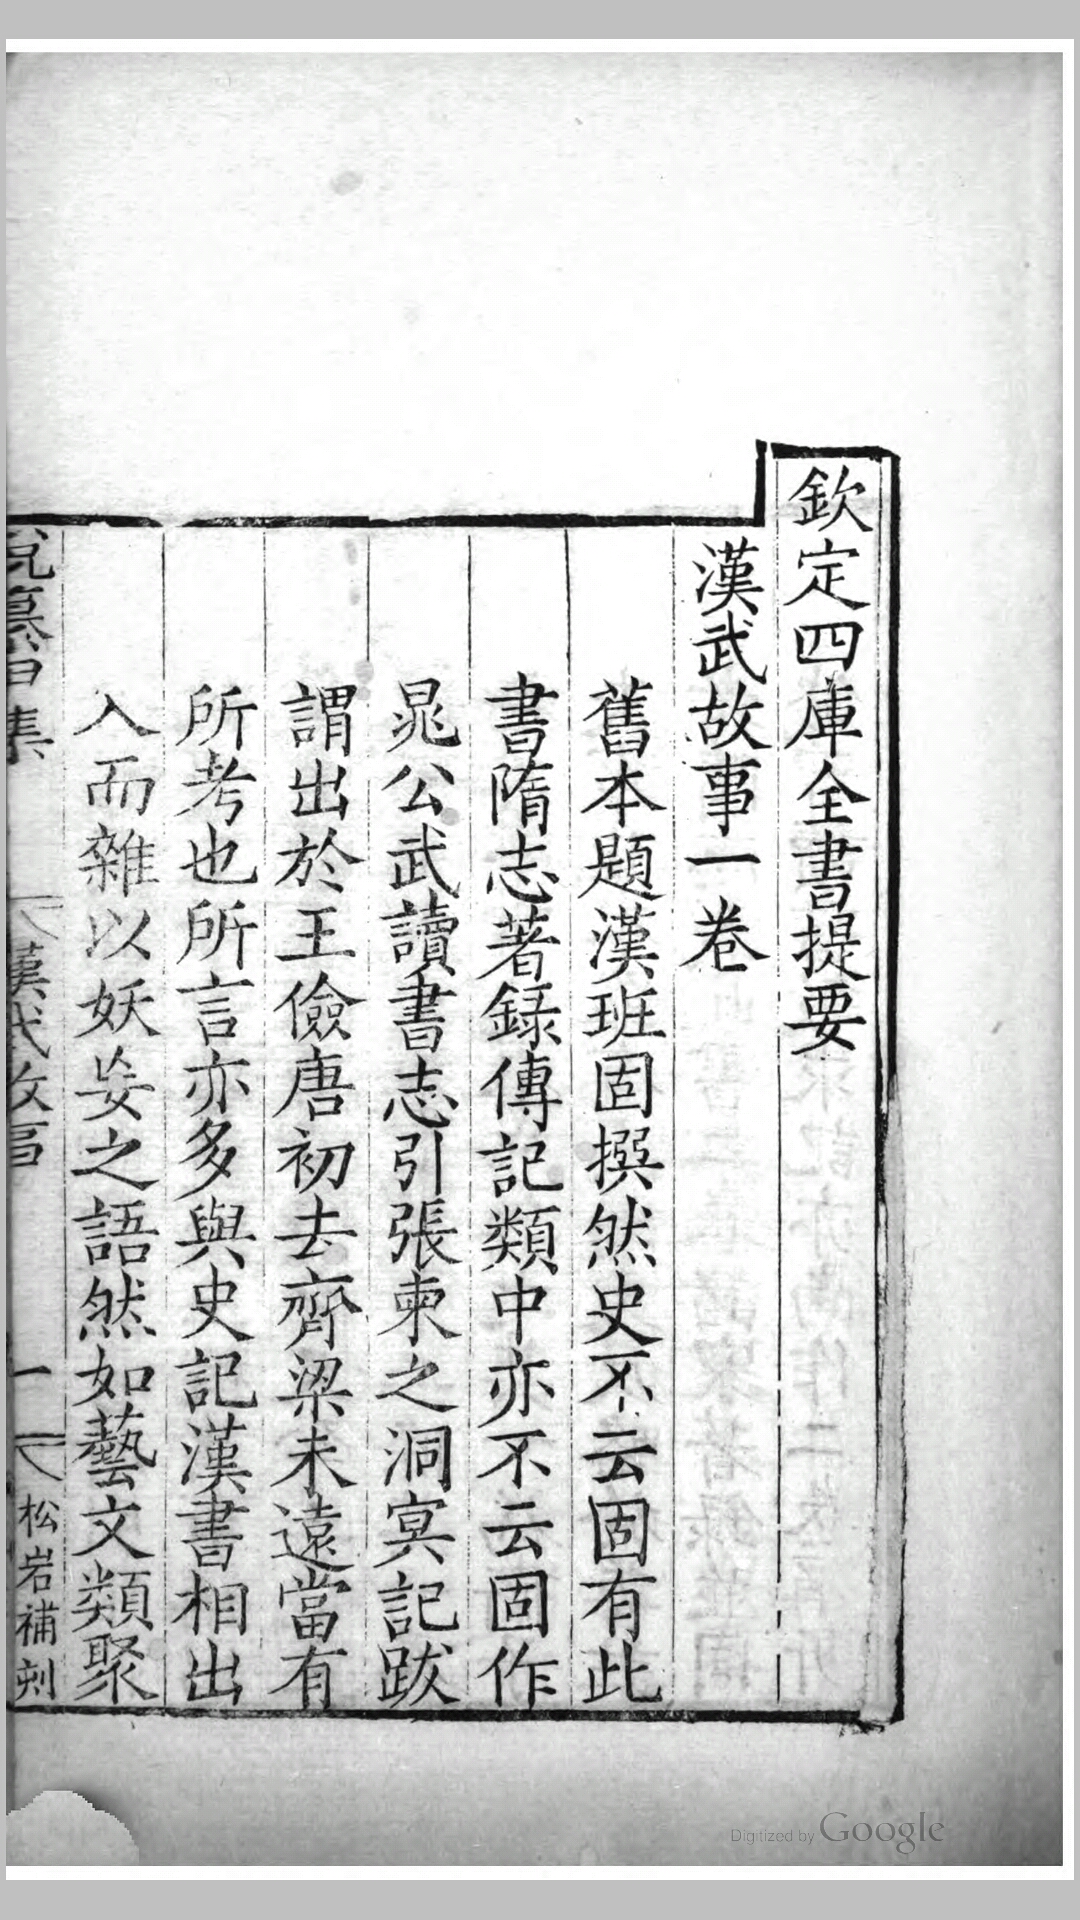 欽定四庫全書提要
漢武故事一卷
舊本題漢班固撰然史不云固有此
書隋志著録傳記類中亦不云固作
晁公武讀書志引張柬之洞冥記跋
謂出於王儉唐初去齊梁未遠當有
所考也所言亦多與史記漢書相出
入而雜以妖妄之語然如藝文類聚
漢武故事
一
松岩補刻
Digitized by Google